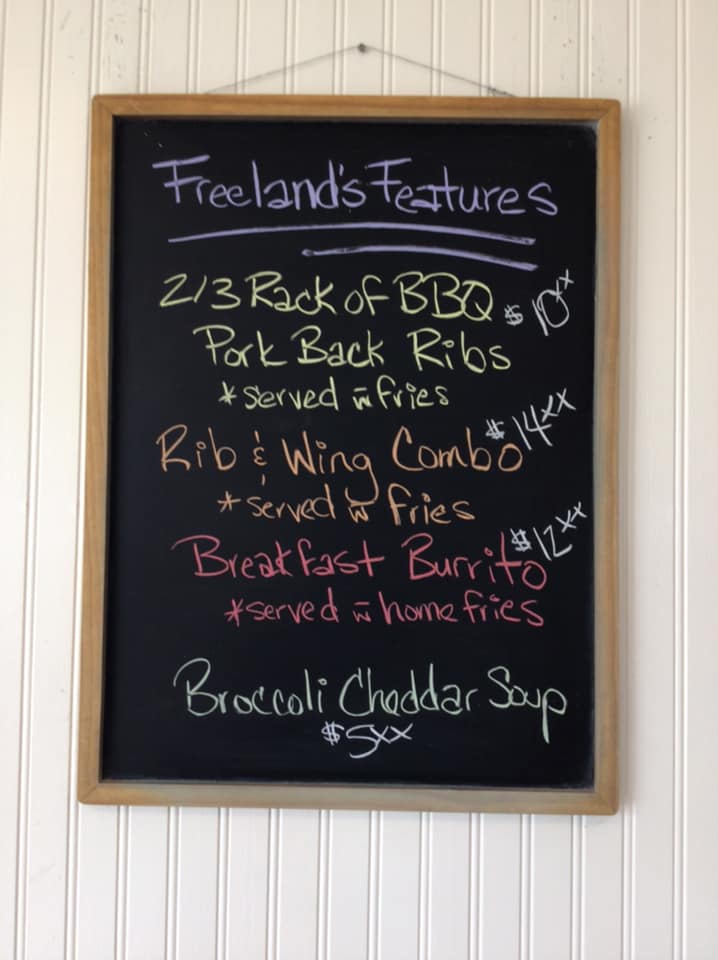 Freeland's Features
2/3 Rack of BBQ $10xx
Pork Back Ribs
*served w fries
Rib & Wing Combo $14xx
*served w fries
Breakfast Burrito $12xx
*served w home fries
Broccoli Cheddar Soup
$5xx